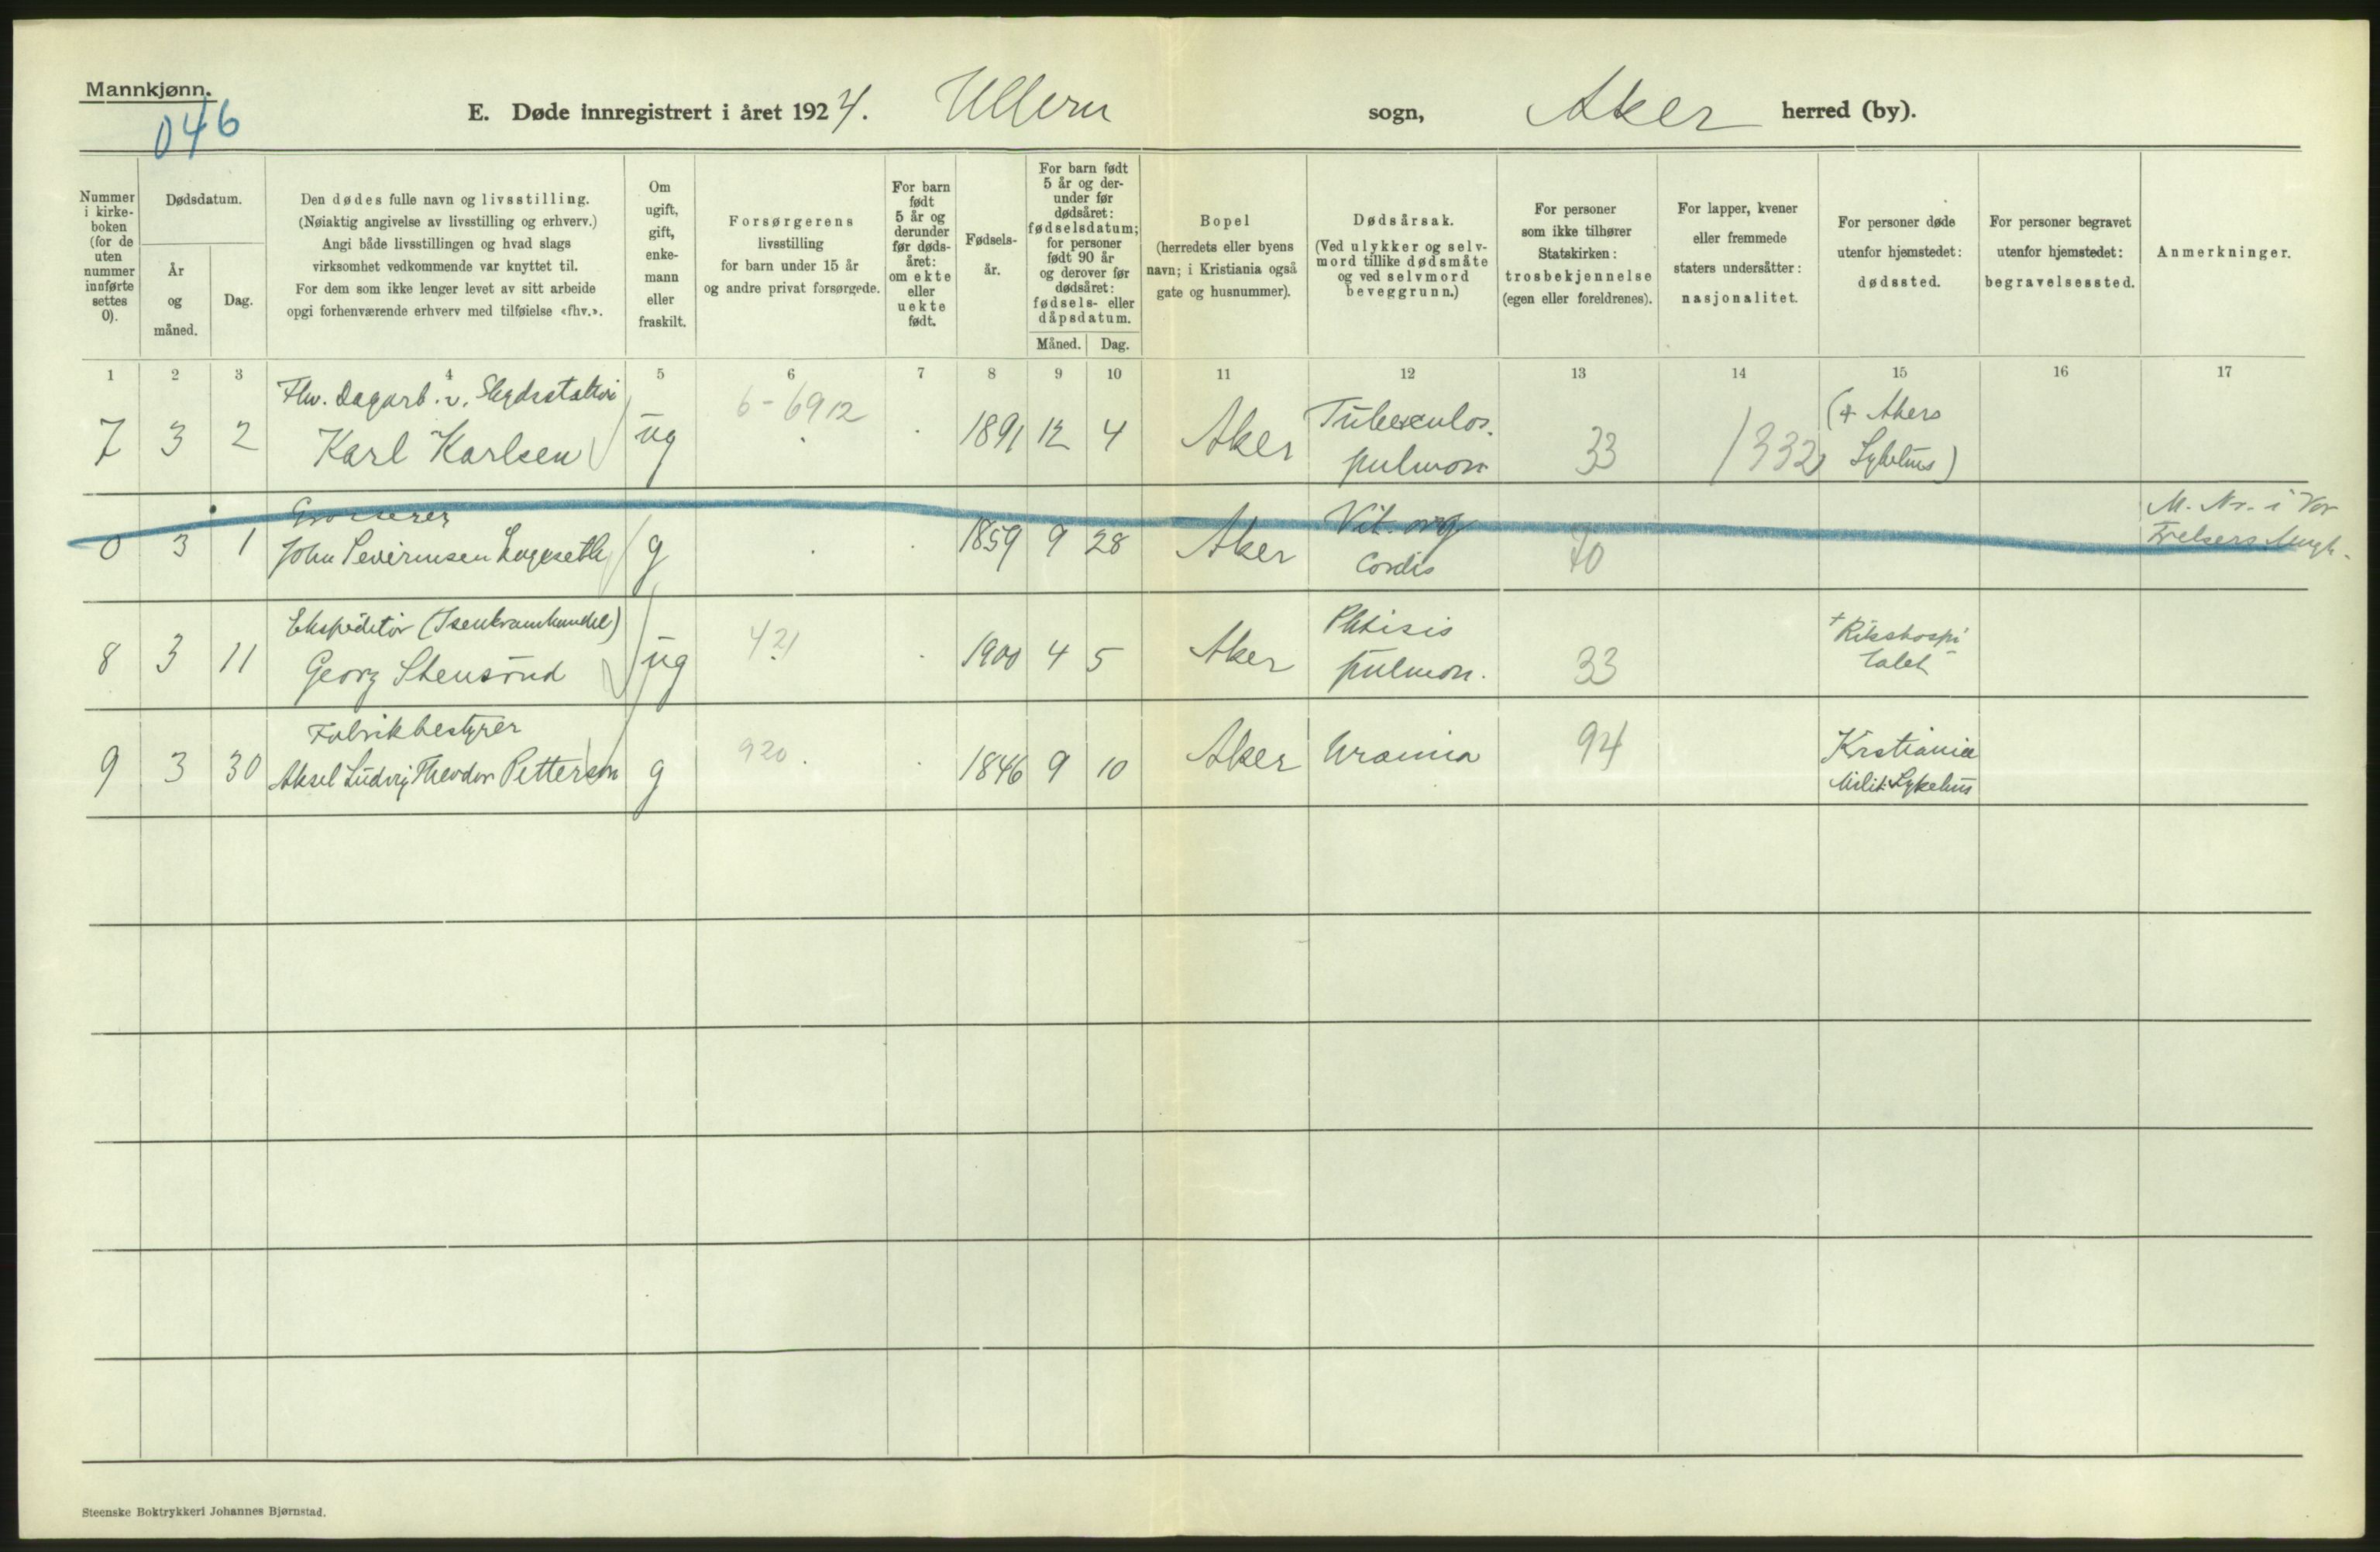 Mannkjønn.
046
E. Døde innregistrert i året 1924. Ullern sogn, Aker herred (by).
Nummer i kirke- boken (for de uten nummer innførte settes 0).
Dødsdatum.
År og måned.
Dag.
Den dødes fulle navn og livsstilling.
(Nøiaktig angivelse av livsstilling og erhverv.)
Angi både livsstillingen og hvad slags
virksomhet vedkommende var knyttet til.
For dem som ikke lenger levet av sitt arbeide
opgi forhenværende erhverv med tilføielse «fhv.».
Om ugift, gift, enke- mann eller fraskilt.
Forsørgerens
livsstilling
for barn under 15 år
og andre privat forsørgede.
For barn født 5 år og derunder før døds- året: om ekte eller uekte født.
Fødsels- år.
For barn født 5 år og der- under før dødsåret: fødselsdatum; for personer født 90 år og derover før dødsåret: fødsels- eller dåpsdatum.
Måned. Dag.
Bopel
(herredets eller byens
navn; i Kristiania også
gate og husnummer).
Dødsårsak.
(Ved ulykker og selv-
mord tillike dødsmåte
og ved selvmord
beveggrunn.)
For personer
som ikke tilhører
Statskirken:
trosbekjennelse
(egen eller foreldrenes).
For lapper, kvener
eller fremmede
staters undersåtter:
nasjonalitet.
For personer døde
utenfor hjemstedet:
dødssted.
For personer begravet
utenfor hjemstedet:
begravelsessted.
Anmerkninger.
1 2 3 4 5 6 7 8 9 10 11 12 13 14 15 16 17
Fhv. Dagarb. v.
6-6912 Tuberculos. (+ Akers
7 3 2 Karl Karlsen ug 1891 12 4 Aker pulmon 33 1332 Sykehus)
Grosserer Vit. org. M. Nr. i Vor
0 3 1 John Severinsen g 1859 9 28 Aker Cordis 70 Frelsers
Ekspeditør (Isenkramhandel) 421 Phtisis + Rikshospi
8 3 11 Georg Stensrud ug 1900 4 5 Aker pulmon. 33 talet
Fabrikbestyrer 920 Kristiania
9 3 30 Aksel Ludvig Theodor Petterson g 1846 9 10 Aker Uræmia 94 Milit. Sykehus
Steenske Boktrykkeri Johannes Bjørnstad.